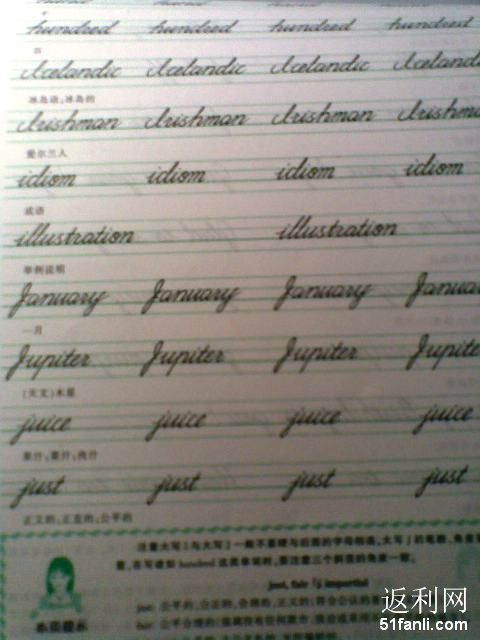 hundred hundred hundred hundred
百
Icelandic Icelandic Icelandic Icelandic
冰岛语;冰岛的
Irishman Irishman Irishman Irishman
爱尔兰人
idiom idiom idiom idiom
成语
illustration illustration
举例说明
January January January Janua
一月
Jupiter Jupiter Jupiter Jupite
(天文)木星
juice juice juice juice
果汁;菜汁;肉汁
just just just just
正义的;正直的;公平的
注意大写 I 与大写 J 一般不要硬与后面的字母相连,大写 J 的笔顺、角度
在写诸如 hundred 这类单词时,要注意三个斜面的角度一致。
just, fair 与 impartial
just: 公平的,公正的,合理的,正义的(符合公认的
fair: 公平合理的
返利网
51fanli.com